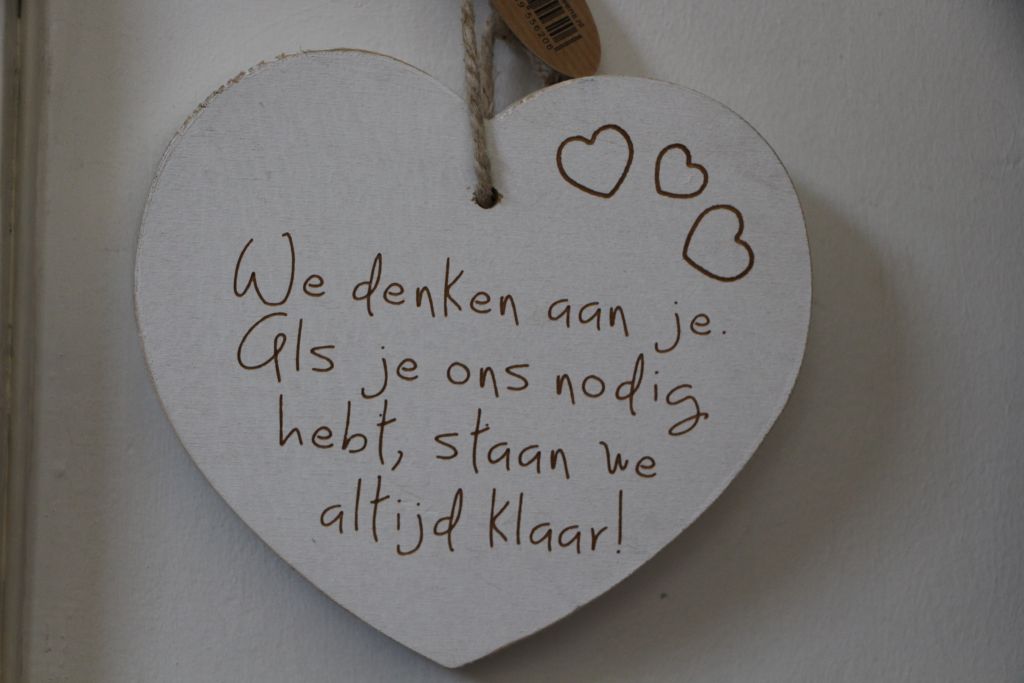 We denken aan je.
Als je ons nodig
hebt, staan we
altijd klaar!